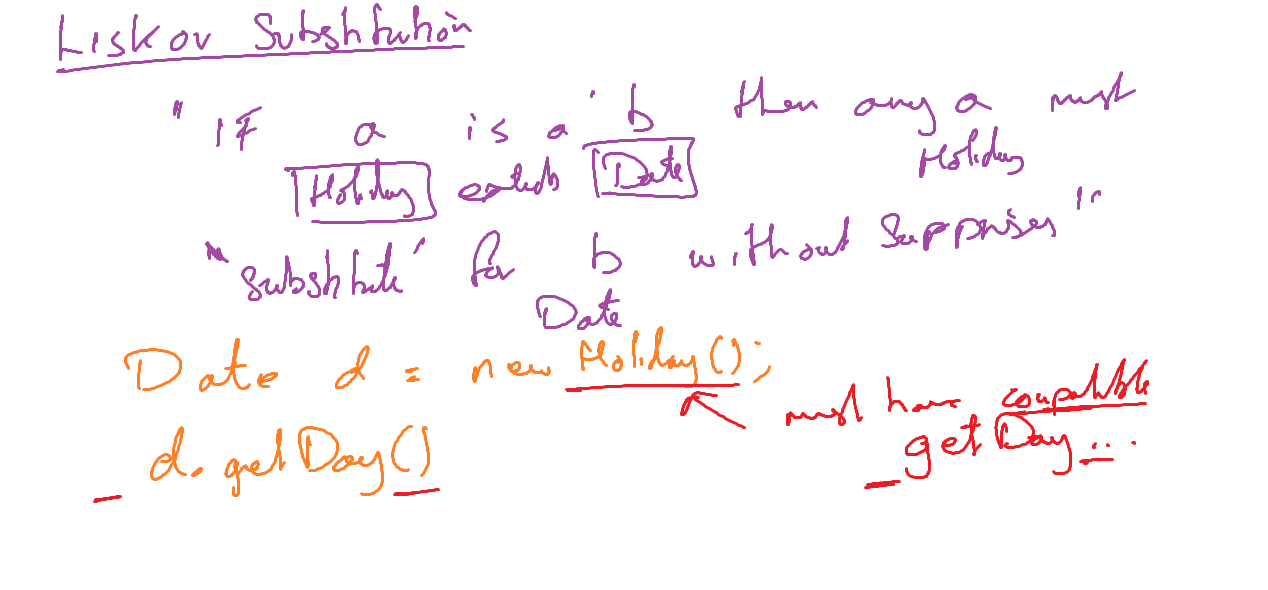 Liskov Substitution
"IF a is a b then any a must
Holiday extends Date Holiday
"substitute" for b without surprises"
Date
Date d = new Holiday();
must have compatible
d.getDay() getDay...